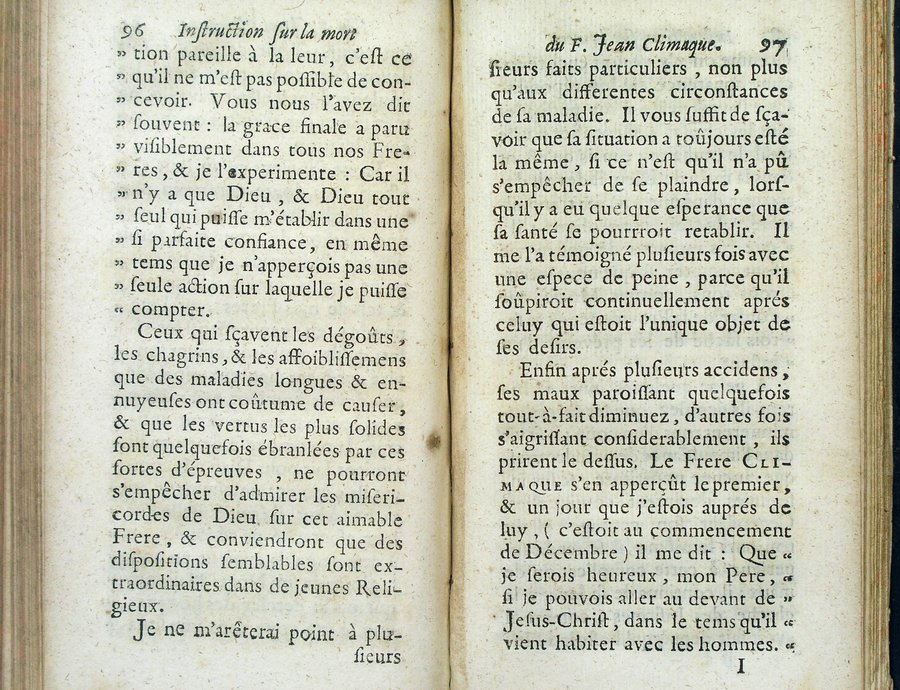 96 Inſtruction ſur la mort
” tion pareille à la leur, c'eſt ce
” qu'il ne m'eſt pas poſſible de con-
” cevoir. Vous nous l'avez dit
” ſouvent : la grace finale a paru
” viſiblement dans tous nos Fre-
” res, & je l'experimente : Car il
” n'y a que Dieu, & Dieu tout
” ſeul qui puiſſe m'établir dans une
” ſi parfaite confiance, en même
” tems que je n'apperçois pas une
” ſeule action ſur laquelle je puiſſe
“ compter.
Ceux qui ſçavent les dégoûts,
les chagrins, & les affoibliſſemens
que des maladies longues & en-
nuyeuſes ont coûtume de cauſer,
& que les vertus les plus ſolides
ſont quelquefois ébranlées par ces
ſortes d'épreuves, ne pourront
s'empêcher d'admirer les miſeri-
cordes de Dieu ſur cet aimable
Frere, & conviendront que des
diſpoſitions ſemblables ſont ex-
traordinaires dans de jeunes Reli-
gieux.
Je ne m'arêterai point à plu-
ſieurs
du F. Jean Climaque. 97
ſieurs faits particuliers, non plus
qu'aux differentes circonſtances
de ſa maladie. Il vous ſuffit de ſça-
voir que ſa ſituation a toûjours eſté
la même, ſi ce n'eſt qu'il n'a pû
s'empêcher de ſe plaindre, lorſ-
qu'il y a eu quelque eſperance que
ſa ſanté ſe pourrroit retablir. Il
me l'a témoigné pluſieurs fois avec
une eſpece de peine, parce qu'il
ſoûpiroit continuellement aprés
celuy qui eſtoit l'unique objet de
ſes deſirs.
Enfin aprés pluſieurs accidens,
ſes maux paroiſſant quelquefois
tout-à-fait diminuez, d'autres fois
s'aigriſſant conſiderablement, ils
prirent le deſſus. Le Frere CLI-
MAQUE s'en apperçût le premier,
& un jour que j'eſtois auprés de
luy, ( c'eſtoit au commencement
de Décembre ) il me dit : Que “
je ſerois heureux, mon Pere, “
ſi je pouvois aller au devant de ”
Jeſus-Chriſt, dans le tems qu'il “
vient habiter avec les hommes. “
I